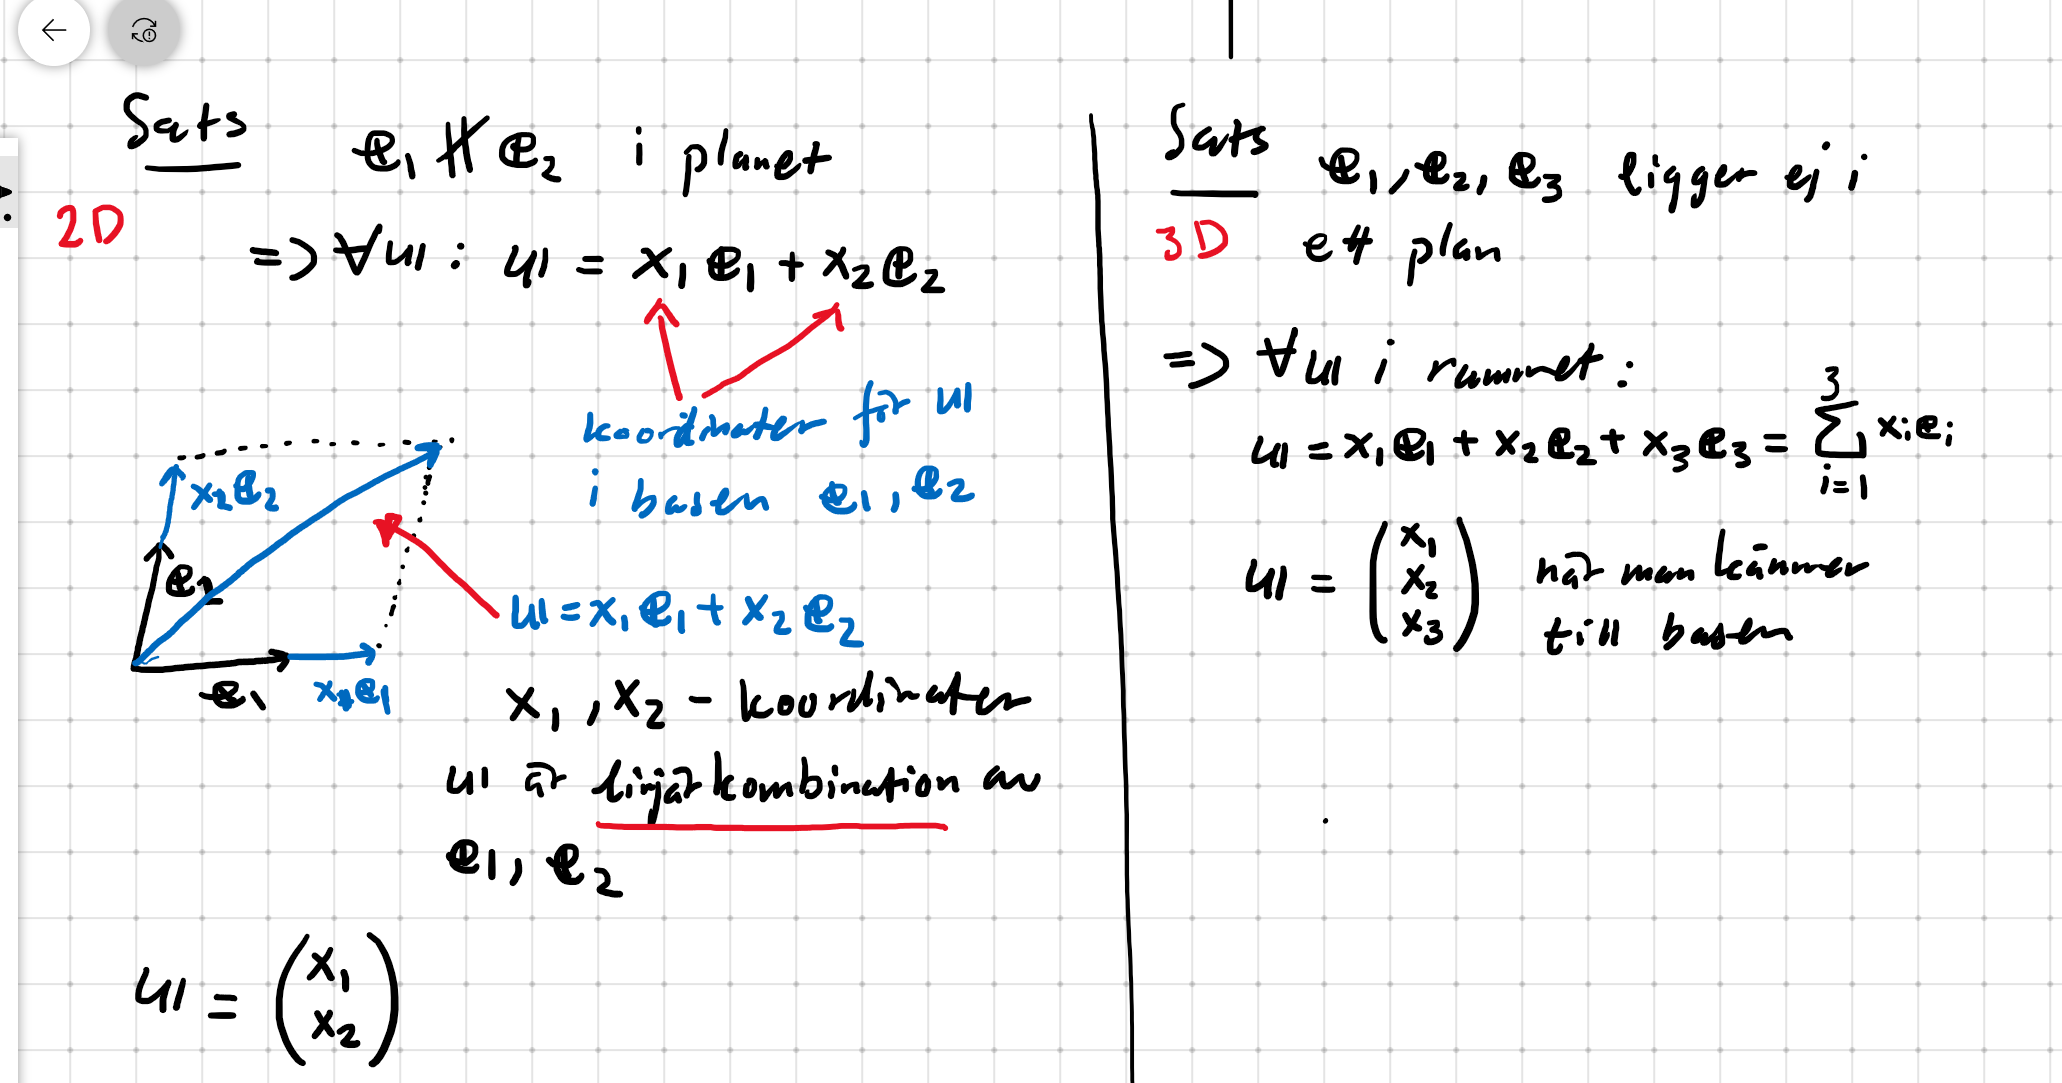 Sats e₁ ∦ e₂ i planet
2D
=> ∀u : u = x₁e₁ + x₂e₂
koordinater för u
i basen e₁, e₂
x₂e₂
e₂
u = x₁e₁ + x₂e₂
e₁ x₁e₁
x₁, x₂ - koordinater
u är linjärkombination av
e₁, e₂
u = (x₁ x₂)
Sats e₁, e₂, e₃ ligger ej i
3D ett plan
=> ∀u i rummet:
u = x₁e₁ + x₂e₂ + x₃e₃ = ∑ᵢ₌₁³ xᵢeᵢ
u = (x₁ x₂ x₃) när man känner
till basen